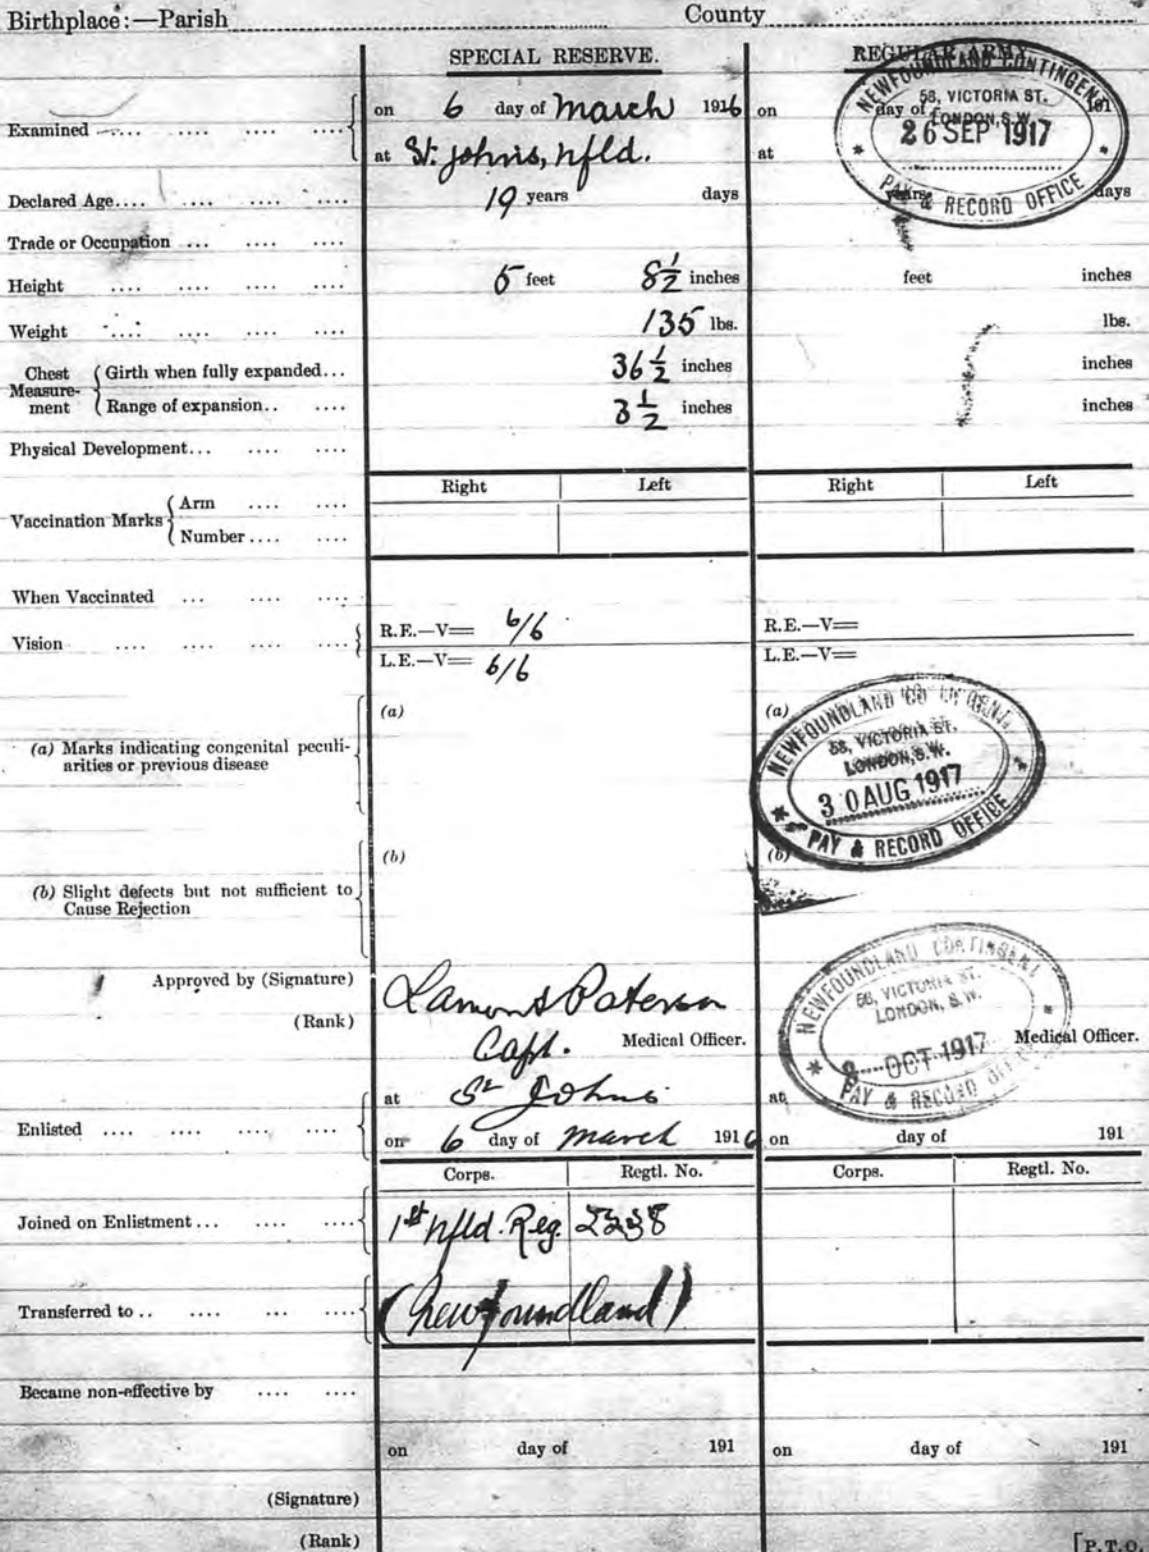 Birthplace:—Parish County
SPECIAL RESERVE. REGULAR ARMY.
NEWFOUNDLAND CONTINGENT
58, VICTORIA ST.
LONDON, S.W.
26 SEP 1917
PAY & RECORD OFFICE
Examined .... .... .... .... on 6 day of March 1916 on day of 191
at St. Johns, Nfld. at
Declared Age.... .... .... .... 19 years days years days
Trade or Occupation ... .... ....
Height .... .... .... .... 5 feet 8½ inches feet inches
Weight .... .... .... .... 135 lbs. lbs.
Chest Measure-ment Girth when fully expanded... 36½ inches inches
Range of expansion.. .... 3½ inches inches
Physical Development... .... ....
Right Left Right Left
Vaccination Marks Arm .... ....
Number .... ....
When Vaccinated ... .... ....
Vision .... .... .... .... R.E.—V= 6/6 R.E.—V=
L.E.—V= 6/6 L.E.—V=
(a) Marks indicating congenital peculi-
arities or previous disease
(a) (a)
NEWFOUNDLAND CONTINGENT
58, VICTORIA ST.
LONDON, S.W.
30 AUG 1917
PAY & RECORD OFFICE
(b) Slight defects but not sufficient to
Cause Rejection
(b) (b)
Approved by (Signature) Lamont Paterson
(Rank) Capt. Medical Officer. Medical Officer.
NEWFOUNDLAND CONTINGENT
58, VICTORIA ST.
LONDON, S.W.
OCT 1917
PAY & RECORD OFFICE
Enlisted .... .... .... .... at St Johns at
on 6 day of March 1916 on day of 191
Corps. Regtl. No. Corps. Regtl. No.
Joined on Enlistment... .... .... 1st Nfld. Reg.
Transferred to .. .... ... .... (Newfoundland)
Became non-effective by .... ....
on day of 191 on day of 191
(Signature)
(Rank)
[P.T.O.